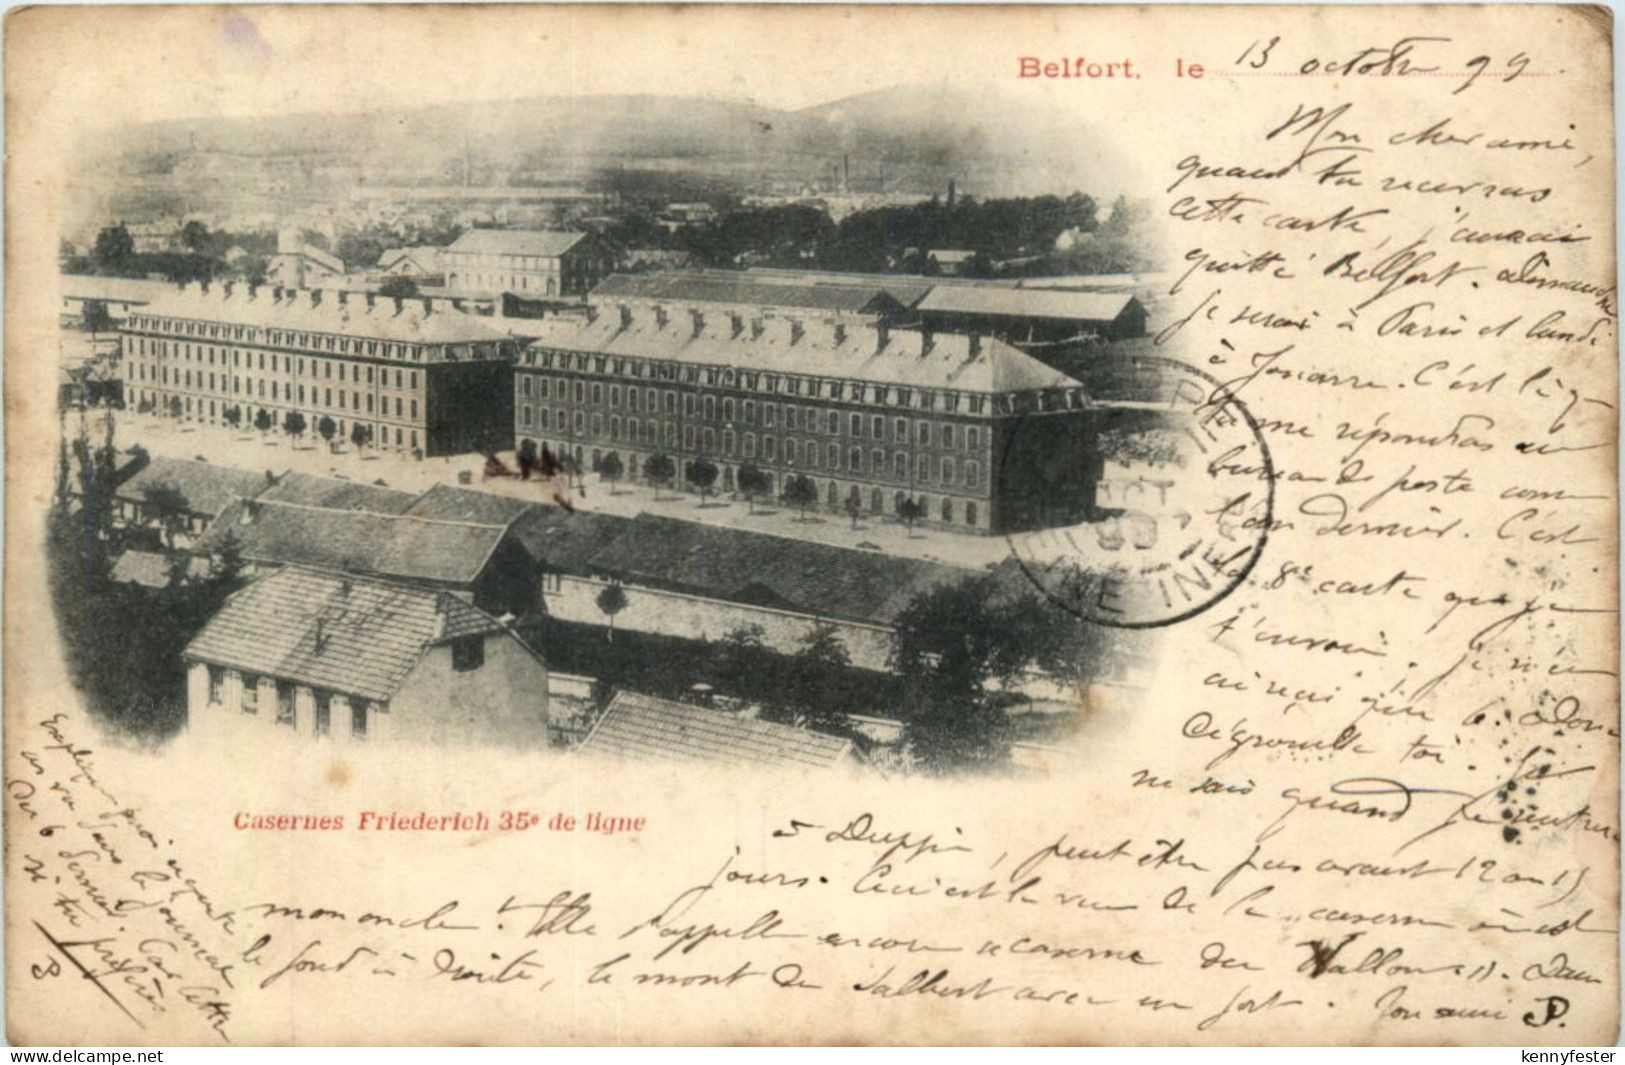 Belfort, le 13 octobre 99.
Mon cher ami,
quand tu recevras
cette carte, j'aurai
quitté Belfort. Dimanche
je serai à Paris et lundi
à . C'est là q
tu me répondras au
bureau de poste comme
l'an dernier. C'est
la 8e carte que je
t'envoie. Je n'en
ai reçu que 6. Donc
dégrouille toi. Je
ne sais quand je rentrerai
à , peut être pas avant 12 ou 15
jours. Ceci est la vue de la caserne où est
mon oncle. Elle s'appelle encore "caserne du Vallon". Dans
le fond à droite, le mont du Salbert avec un fort. Ton ami P.
Casernes Friederich 35e de ligne
Explique pourquoi
as vu dans le journal
du 6 cette
si tu préfères
P
kennyfester
www.delcampe.net